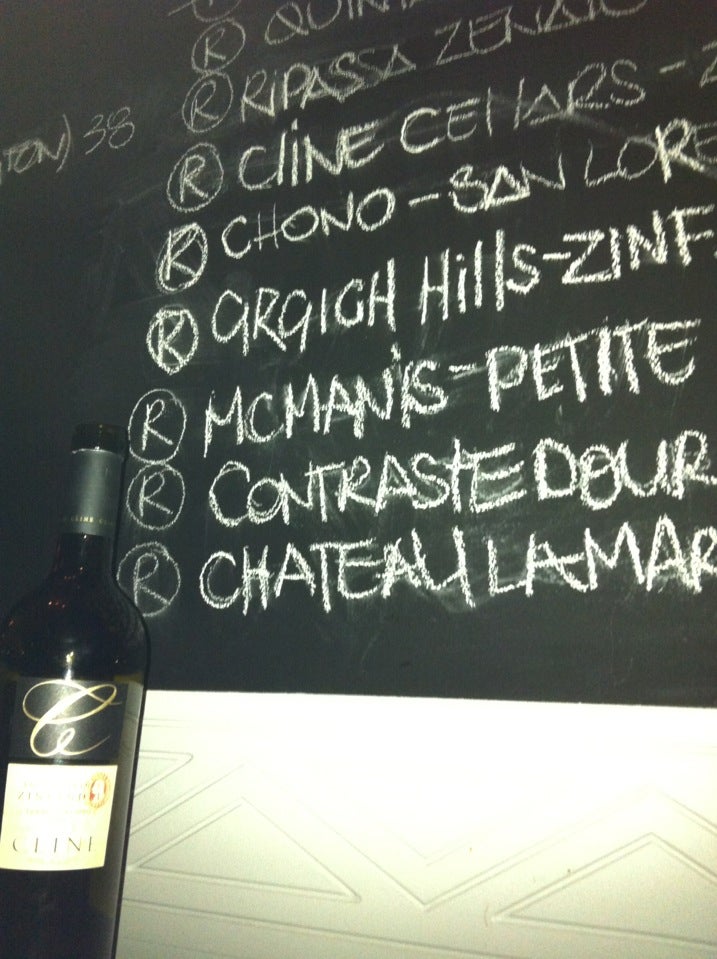 R QUINTA
R RIPASSA ZENATO
38
R CLINE CELLARS - Z
R CHONO - SAN LORE
R GRGICH HILLS - ZINF
R MCMANIS - PETITE
R CONTRASTE DOUR
R CHATEAU LAMAR
CLINE
C
ZINFANDEL
CLINE